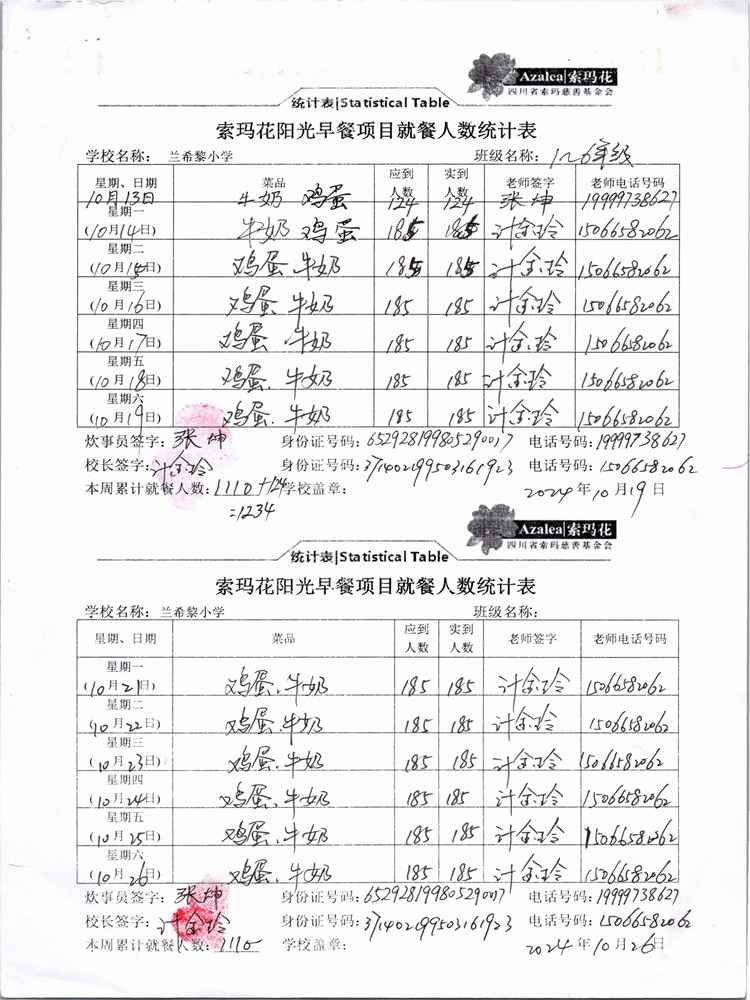 Azalea|索玛花
四川省索玛慈善基金会
统计表|Statistical Table
索玛花阳光早餐项目就餐人数统计表
学校名称: 兰希黎小学 班级名称: 1~6年级
星期、日期 菜品 应到人数 实到人数 老师签字 老师电话号码
10月13日 牛奶 鸡蛋 124 124 张坤 19999738627
星期一
(10月14日) 牛奶 鸡蛋 185 185 计余玲 15066582062
星期二
(10月15日) 鸡蛋.牛奶 185 185 计余玲 15066582062
星期三
(10月16日) 鸡蛋.牛奶 185 185 计余玲 15066582062
星期四
(10月17日) 鸡蛋.牛奶 185 185 计余玲 15066582062
星期五
(10月18日) 鸡蛋.牛奶 185 185 计余玲 15066582062
星期六
(10月19日) 鸡蛋.牛奶 185 185 计余玲 15066582062
炊事员签字: 张坤 身份证号码: 652928199805290017 电话号码: 19999738627
校长签字: 计余玲 身份证号码: 371402199503161923 电话号码: 15066582062
本周累计就餐人数: 1110+124 学校盖章: 2024年10月19日
=1234
Azalea|索玛花
四川省索玛慈善基金会
统计表|Statistical Table
索玛花阳光早餐项目就餐人数统计表
学校名称: 兰希黎小学 班级名称:
星期、日期 菜品 应到人数 实到人数 老师签字 老师电话号码
星期一
(10月21日) 鸡蛋.牛奶 185 185 计余玲 15066582062
星期二
(10月22日) 鸡蛋.牛奶 185 185 计余玲 15066582062
星期三
(10月23日) 鸡蛋.牛奶 185 185 计余玲 15066582062
星期四
(10月24日) 鸡蛋.牛奶 185 185 计余玲 15066582062
星期五
(10月25日) 鸡蛋.牛奶 185 185 计余玲 15066582062
星期六
(10月26日) 鸡蛋.牛奶 185 185 计余玲 15066582062
炊事员签字: 张坤 身份证号码: 652928199805290017 电话号码: 19999738627
校长签字: 计余玲 身份证号码: 371402199503161923 电话号码: 15066582062
本周累计就餐人数: 1110 学校盖章: 2024年10月26日